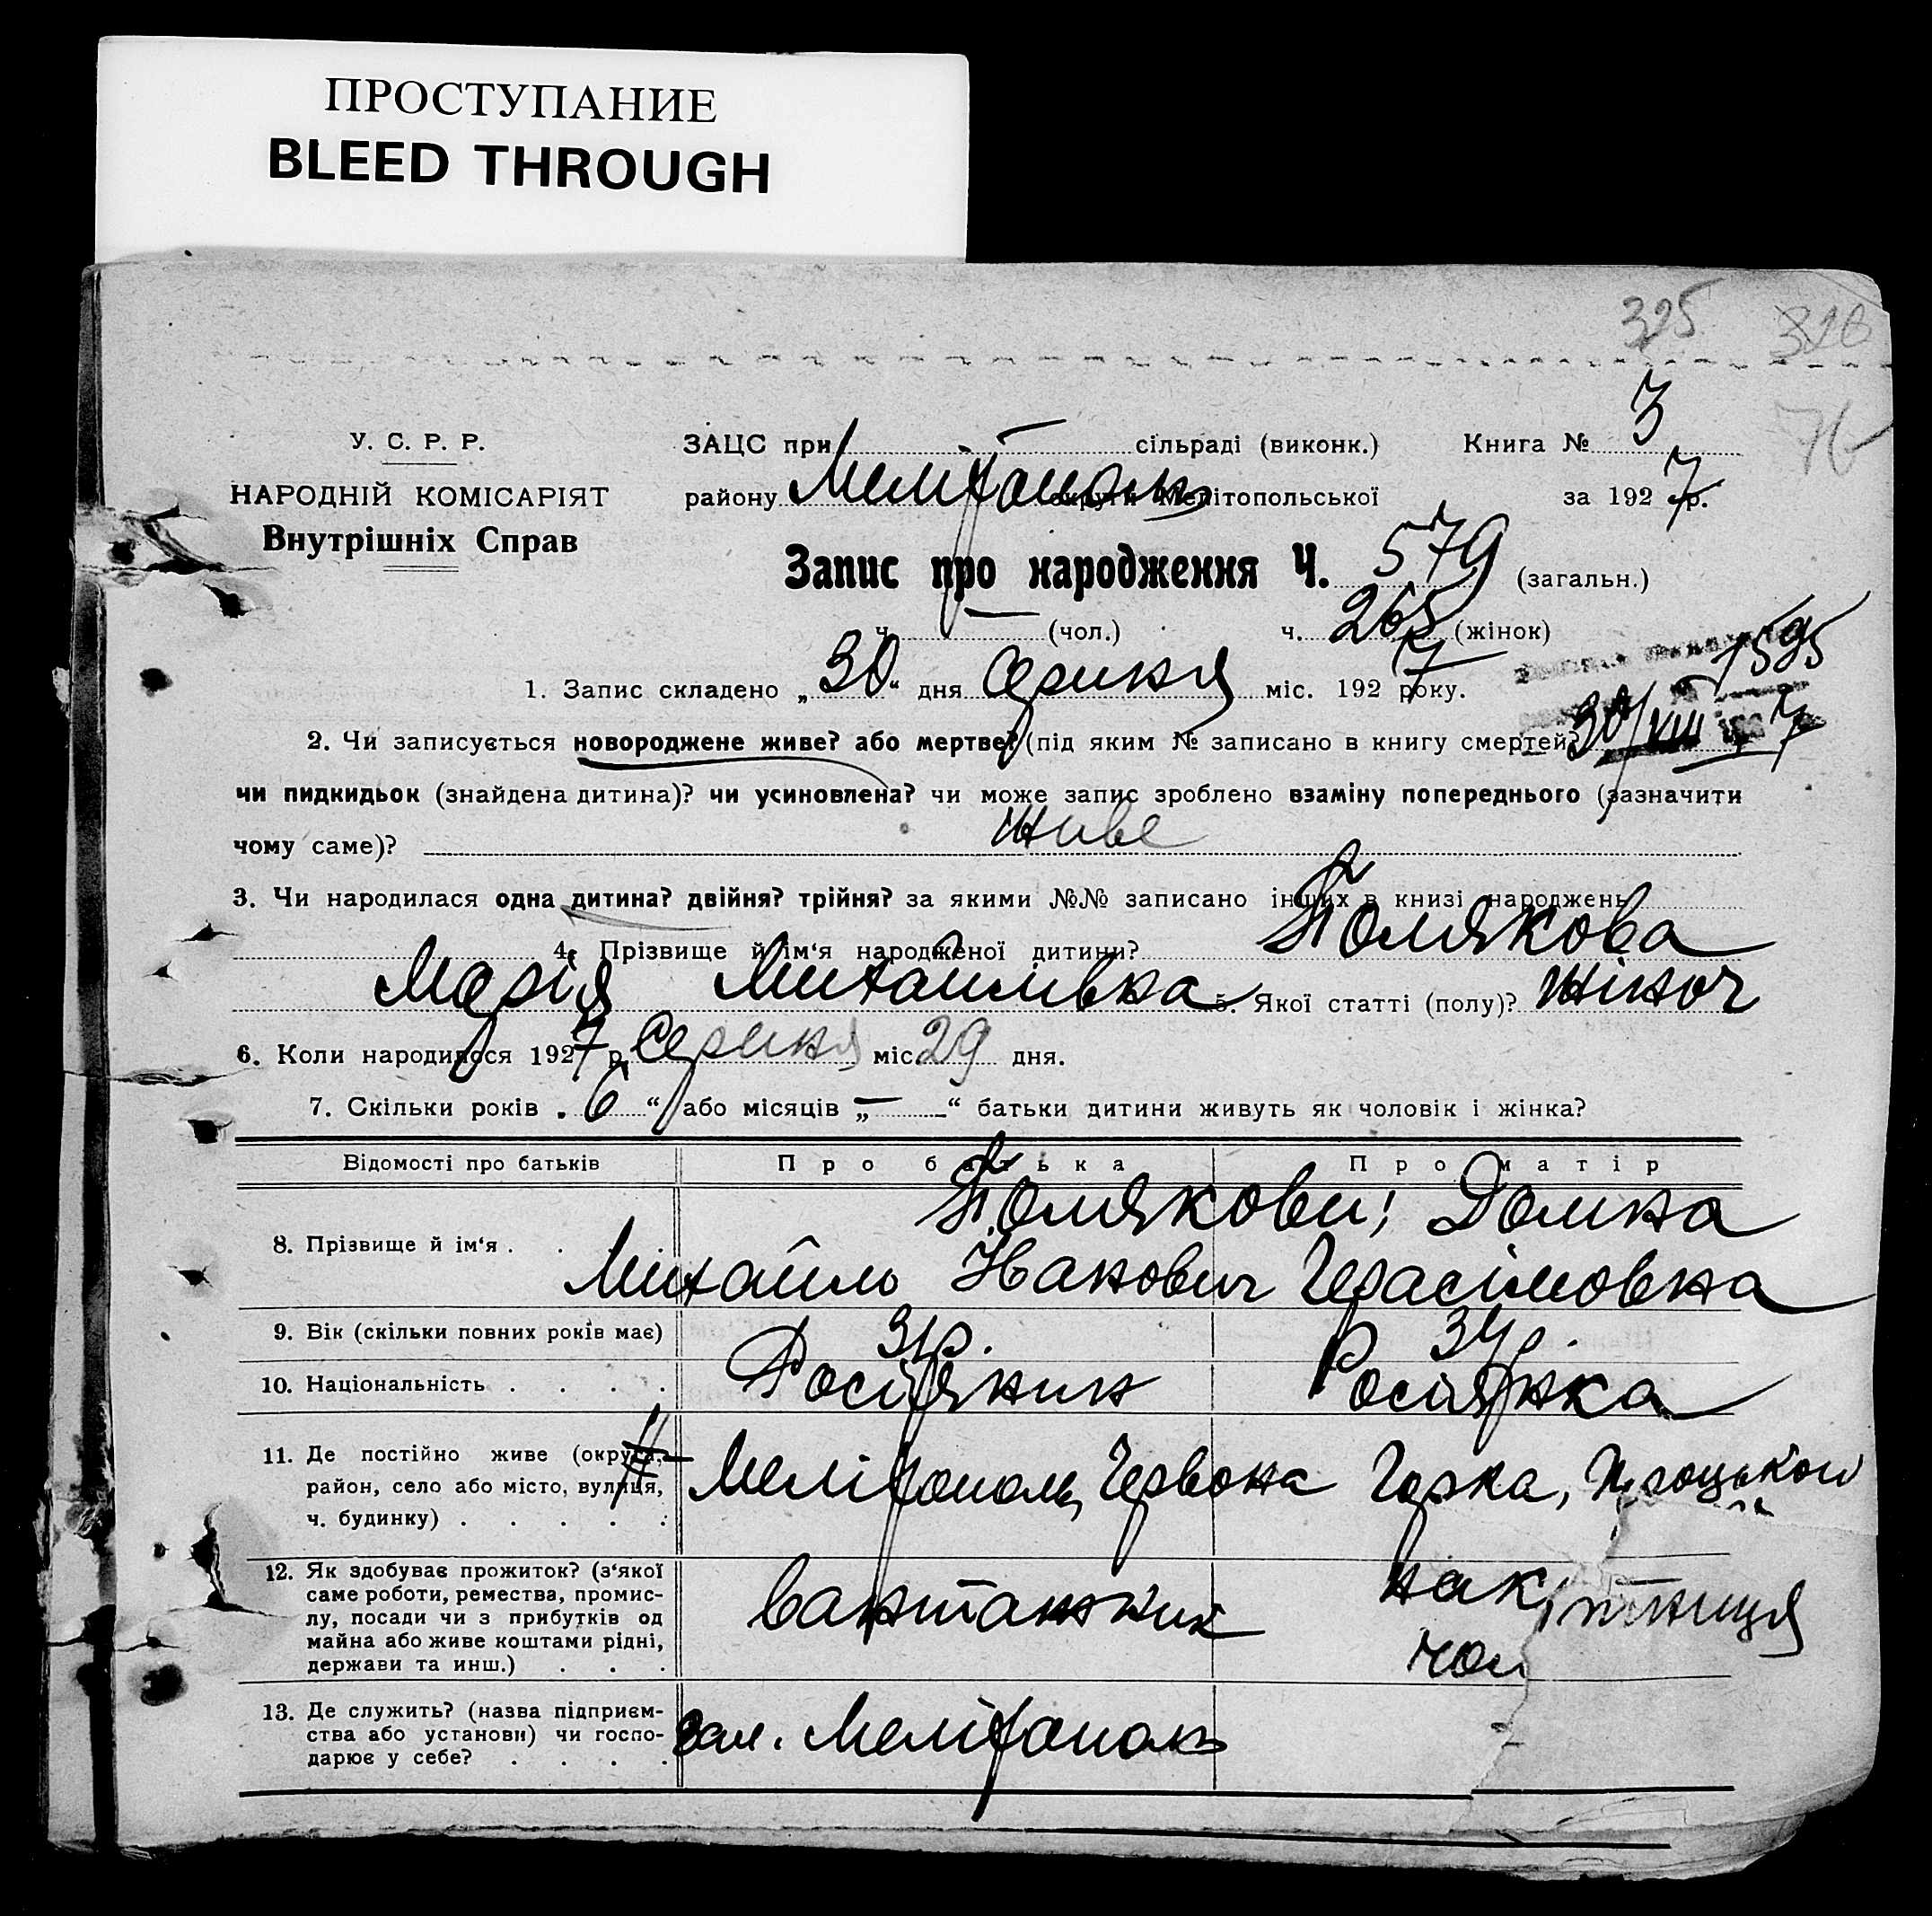 ПРОСТУПАНИЕ
BLEED THROUGH
325 326
76
У. С. Р. Р.
НАРОДНІЙ КОМІСАРІЯТ
Внутрішніх Справ
ЗАЦС при — сільраді (виконк.) Книга № 3
району Мелітополь округи Мелітопольської за 1927 р.
Запис про народження Ч. 579 (загальн.)
ч. — (чол.) ч. 265 (жінок)
1595
1. Запис складено „30“ дня Серпня міс. 1927 року.
30/VIII 7
2. Чи записується новороджене живе? або мертве? (під яким № записано в книгу смертей?
чи пидкидьок (знайдена дитина)? чи усиновлена? чи може запис зроблено взаміну попереднього (зазначити
чому саме)? живе
3. Чи народилася одна дитина? двійня? трійня? за якими №№ записано інших в книзі народжень
4. Прізвище й ім‘я народженої дитини? Полякова
Марія Михайлівна 5. Якої статті (полу)? жіноч
6. Коли народилося 1927 р. Серпня міс. 29 дня.
7. Скільки років „6“ або місяців „—“ батьки дитини живуть як чоловік і жінка?
Відомості про батьків Про батька Про матір
8. Прізвище й ім‘я . . . . Полякови; Домна
Михайло Іванович Герасімовна
9. Вік (скільки повних років має) 31р. 34р.
10. Національність . . . . Росіянин Росіянка
11. Де постійно живе (округа,
район, село або місто, вулиця, Мелітополь, Червона Горка, Троцького
ч. будинку) . . . . .
12. Як здобуває прожиток? (з‘якої
саме роботи, ремества, промис-
лу, посади чи з прибутків од
майна або живе коштами рідні,
держави та инш.) . . . вантажник
13. Де служить? (назва підприєм-
ства або установи) чи госпо-
дарює у себе? . . . . Мелітополь